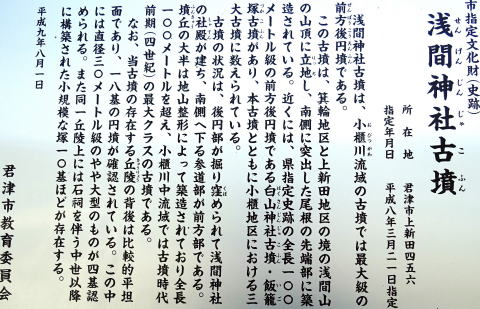 市指定文化財(史跡)
浅間神社古墳
せんげんじんじゃこふん
所在地 君津市上新田四五六
指定年月日 平成八年三月二一日指定
浅間神社古墳は、小櫃川流域の古墳では最大級の
おびつがわ
前方後円墳である。
この古墳は、箕輪地区と上新田地区の境の浅間山
の山頂に立地し、南側に突出した尾根の先端部に築
造されている。近くには、県指定史跡の全長一〇〇
メートル級の前方後円墳である白山神社古墳・飯籠
塚古墳があり、本古墳とともに小櫃地区における三
大古墳に数えられている。
古墳の状況は、後円部が掘り窪められて浅間神社
の社殿が建ち、南側へ下る参道部が前方部である。
墳丘の大半は地山整形によって築造されており全長
一〇〇メートルを超え、小櫃川中流域では古墳時代
前期(四世紀)の最大クラスの古墳である。
なお、当古墳の存在する丘陵の背後は比較的平坦
面であり、一八基の円墳が確認されている。この中
には直径三〇メートル級のやや大型のものが四基認
められる。また同一丘陵上には石祠を伴う中世以降
に構築された小規模な塚一〇基ほどが存在する。
平成九年八月一日
君津市教育委員会